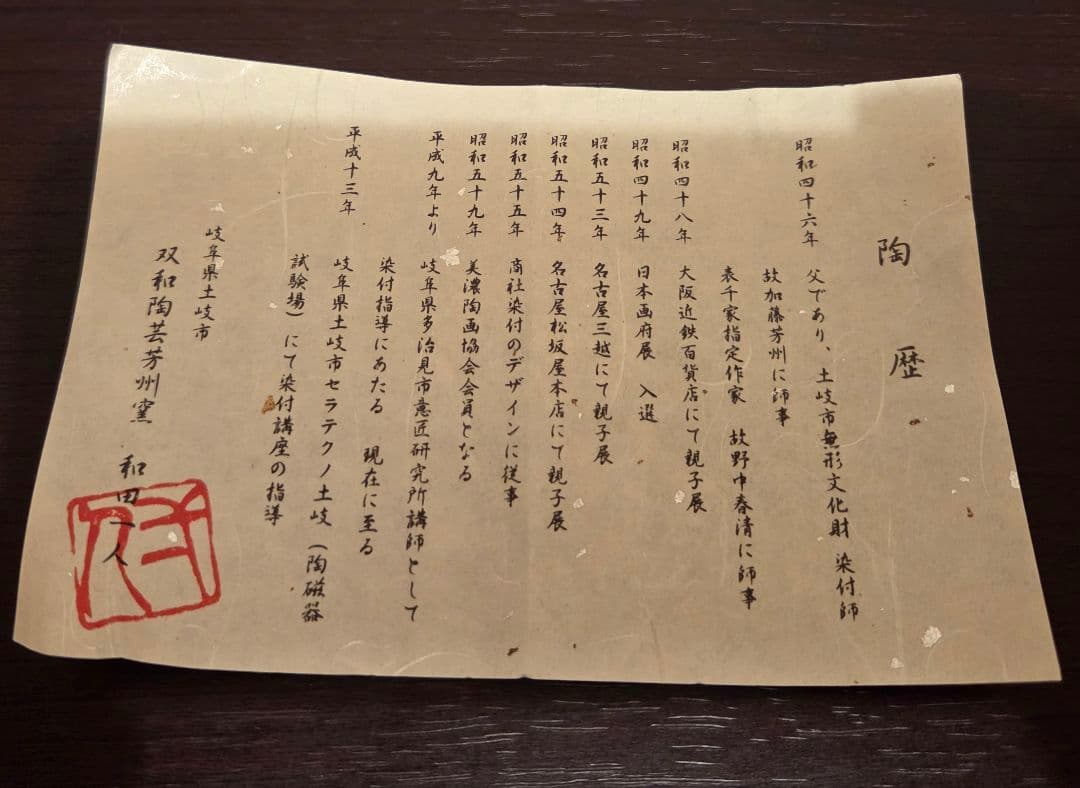 陶歴
昭和四十六年 父であり、土岐市無形文化財 染付師
故加藤芳州に師事
表千家指定作家 故野中春清に師事
昭和四十八年 大阪近鉄百貨店にて親子展
昭和四十九年 日本画府展 入選
昭和五十三年 名古屋三越にて親子展
昭和五十四年 名古屋松坂屋本店にて親子展
昭和五十五年 商社染付のデザインに従事
昭和五十九年 美濃陶画協会会員となる
平成九年より 岐阜県多治見市意匠研究所講師として
染付指導にあたる 現在に至る
平成十三年 岐阜県土岐市セラテクノ土岐（陶磁器
試験場）にて染付講座の指導
岐阜県土岐市
双和陶芸芳州窯 和田一人